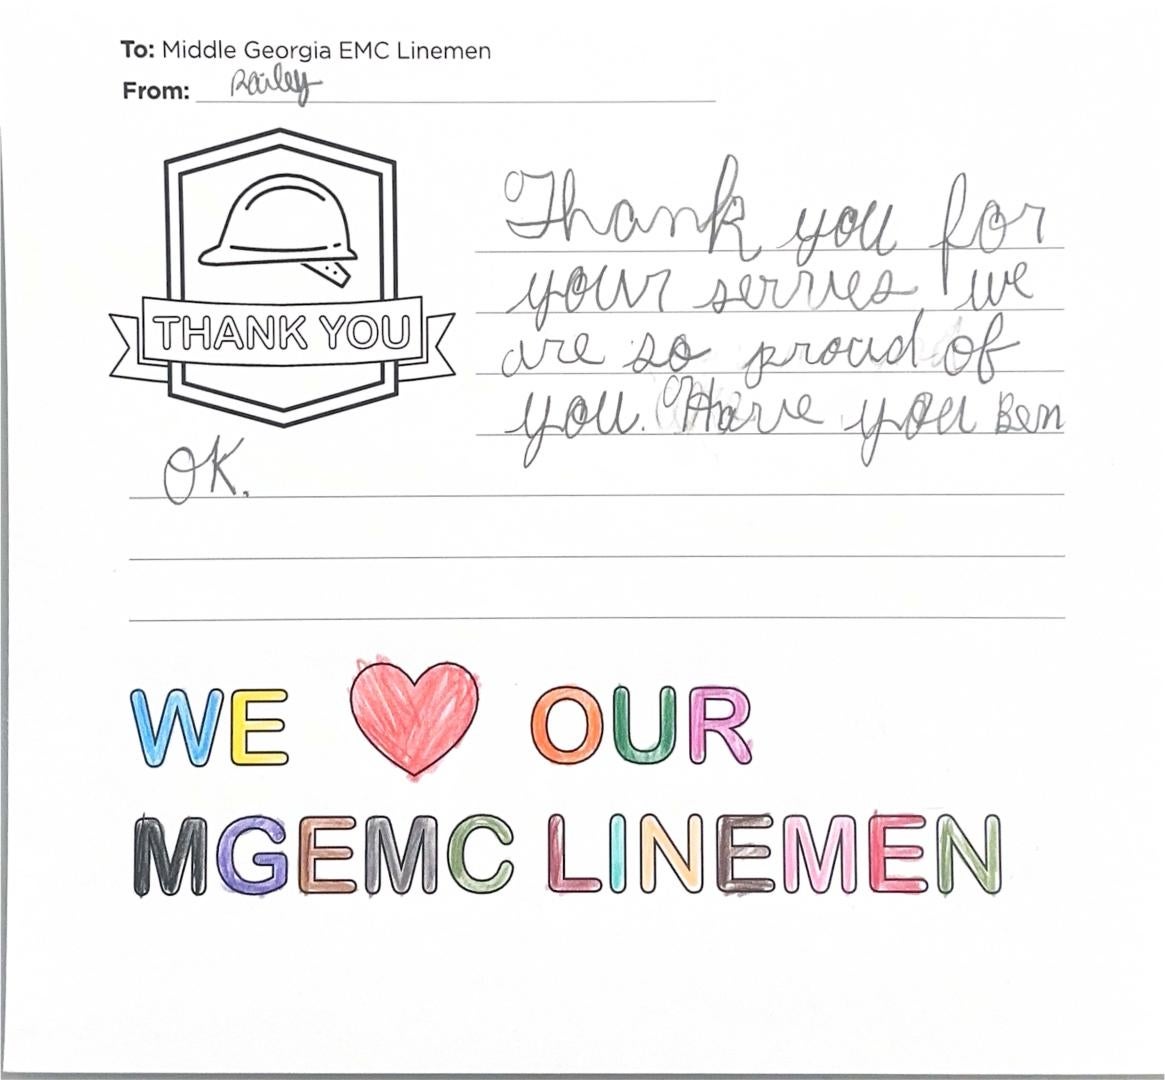 To: Middle Georgia EMC Linemen
From: Railey
THANK YOU
Thank you for
your serves we
are so proud of
you. Have you Ben
OK.
WE OUR
MGEMC LINEMEN